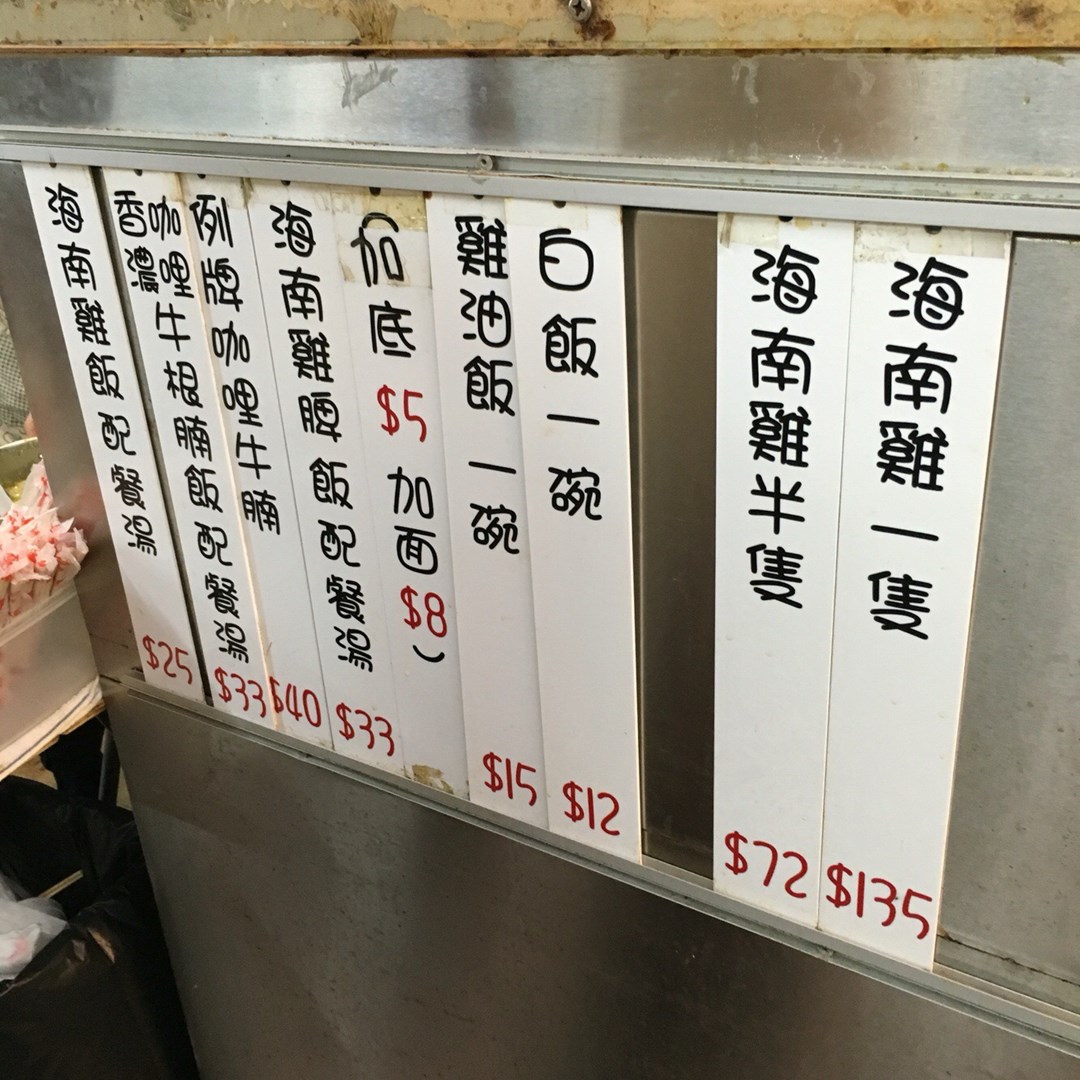 海南雞飯配餐湯 $25
香濃咖哩牛根腩飯配餐湯 $33
例牌咖哩牛腩 $40
海南雞脾飯配餐湯 $33
(加底 $5 加面 $8)
雞油飯一碗 $15
白飯一碗 $12
海南雞半隻 $72
海南雞一隻 $135